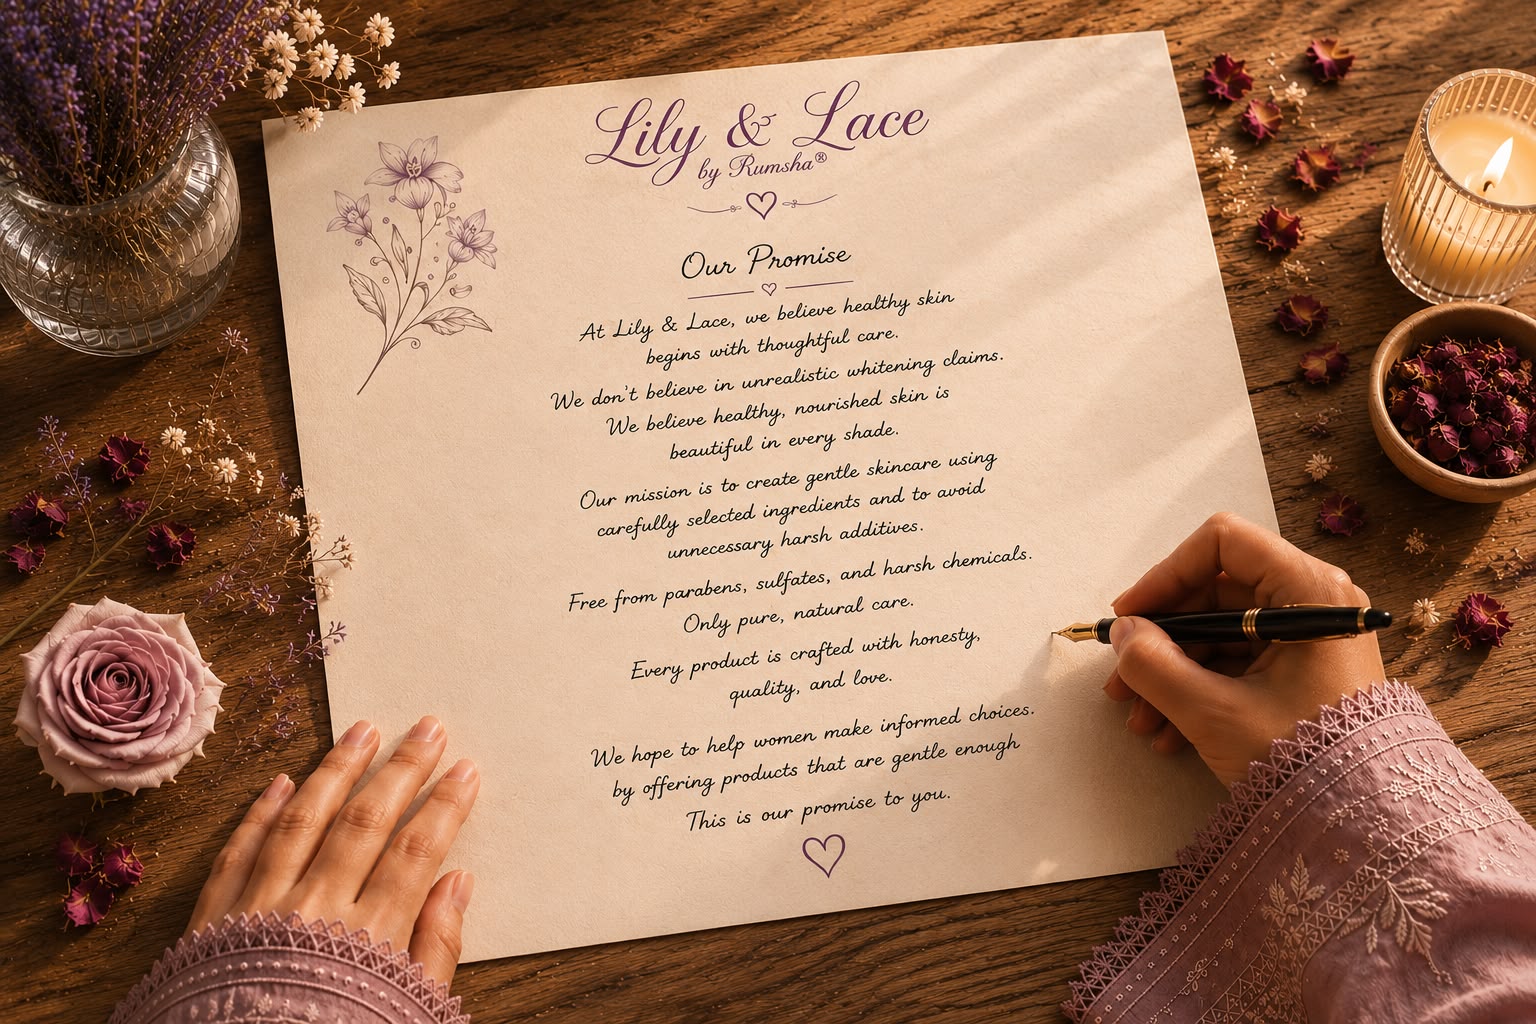 Lily & Lace
by Rumsha®
Our Promise
At Lily & Lace, we believe healthy skin
begins with thoughtful care.
We don't believe in unrealistic whitening claims.
We believe healthy, nourished skin is
beautiful in every shade.
Our mission is to create gentle skincare using
carefully selected ingredients and to avoid
unnecessary harsh additives.
Free from parabens, sulfates, and harsh chemicals.
Only pure, natural care.
Every product is crafted with honesty,
quality, and love.
We hope to help women make informed choices.
by offering products that are gentle enough
This is our promise to you.